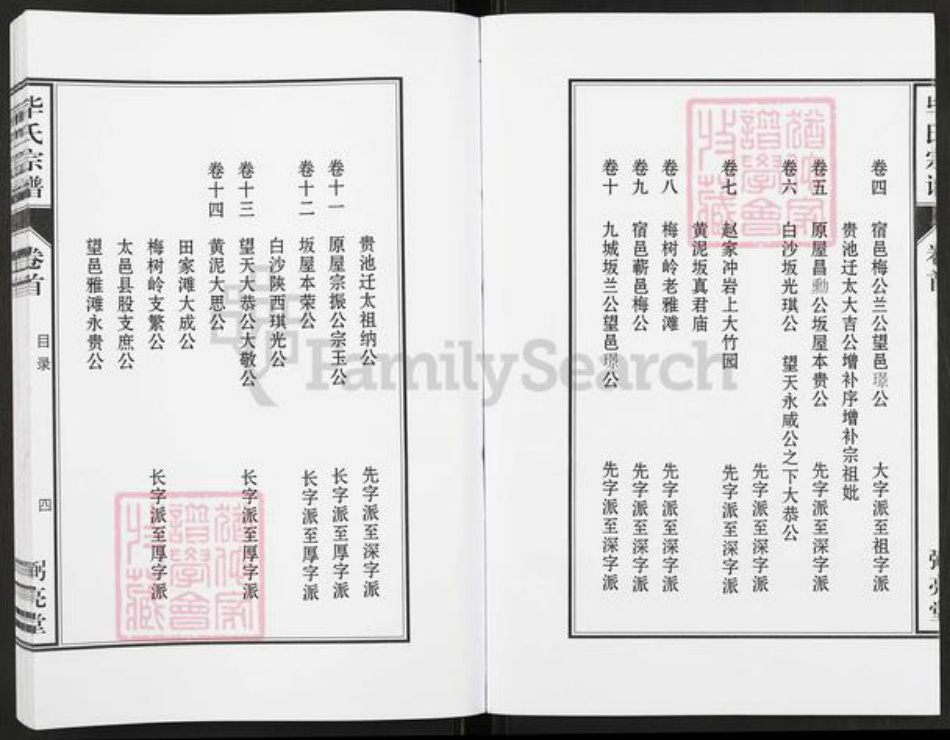 卷四 宿邑梅公兰公望邑璟公 大字派至祖字派
贵池迁太大吉公增补序增补宗祖妣
卷五 原屋昌勳公坂屋本贵公 先字派至深字派
卷六 白沙坂光琪公 望天永咸公之下大恭公
先字派至深字派
卷七 赵家冲岩上大竹园 先字派至深字派
黄泥坂真君庙
卷八 梅树岭老雅滩 先字派至深字派
卷九 宿邑蕲邑梅公 先字派至深字派
卷十 九城坂兰公望邑璟公 先字派至深字派
毕氏宗谱
卷首
贵池迁太祖纳公 先字派至深字派
卷十一 原屋宗振公宗玉公 长字派至厚字派
卷十二 坂屋本荣公 长字派至厚字派
白沙陕西琪光公
卷十三 望天大恭公大敬公 长字派至厚字派
卷十四 黄泥大思公
田家滩大成公
梅树岭支繁公 长字派至厚字派
太邑县股支庶公
望邑雅滩永贵公
毕氏宗谱
卷首
目录
四
弼亮堂
FamilySearch